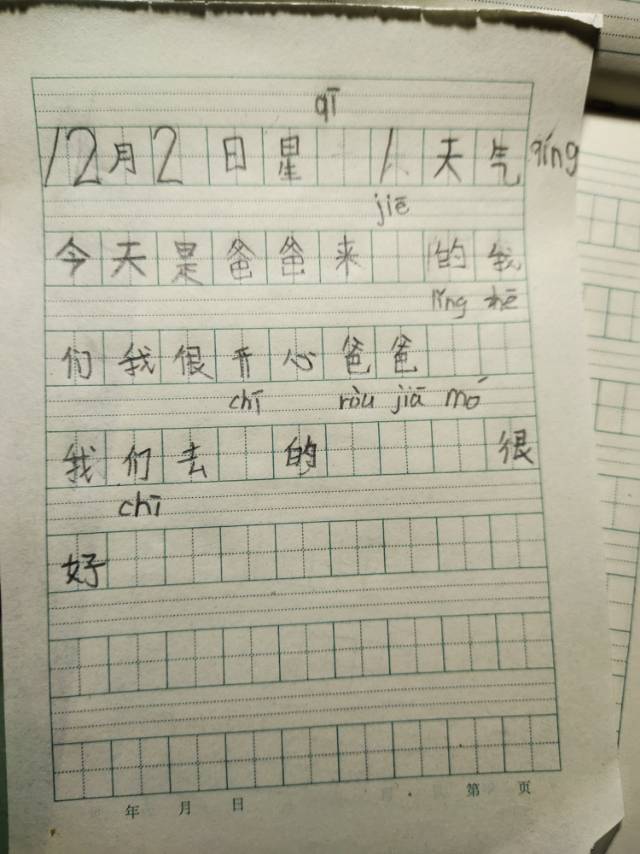 qī
12月2日星 1 天气 qíng
jiē
今天是爸爸来 的我
lǐng zhē
们我很开心爸爸
chī ròu jiā mó
我们去 的 很
chī
好
年 月 日 第 页